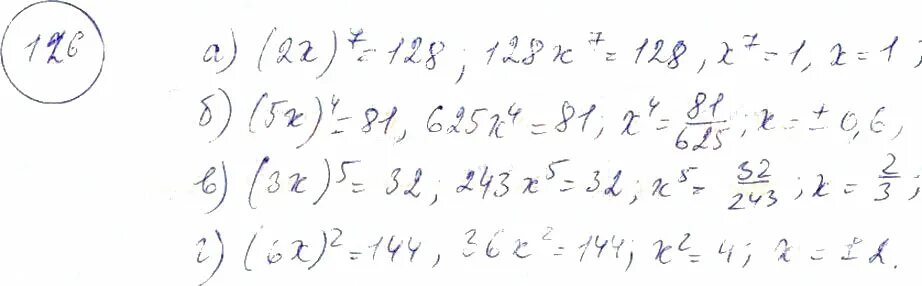 126
а) (2x)⁷ = 128; 128x⁷ = 128, x⁷ = 1, x = 1;
б) (5x)⁴ = 81, 625x⁴ = 81; x⁴ = 81/625; x = ± 0,6,
в) (3x)⁵ = 32; 243x⁵ = 32; x⁵ = 32/243; x = 2/3;
г) (6x)² = 144, 36x² = 144; x² = 4; x = ± 2.